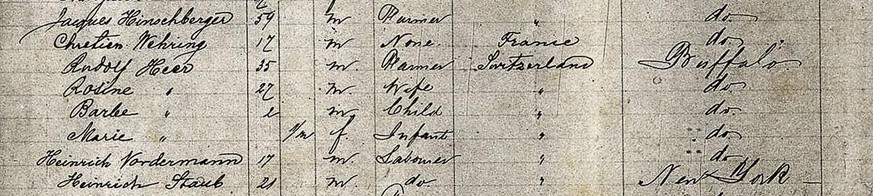 Jacques Hinschberger 59 m Farmer " do.
Chretien Wehring 17 m None. France do.
Rudolf Heer 35 m. Farmer Switzerland Buffalo
Rosine " 27 m. Wife " do
Barbe " 2 m. Child " do.
Marie " 1/m f. Infant " do
Heinrich Vordermann 17 m. Labourer " do
Heinrich Staub 21 m. do. " New York